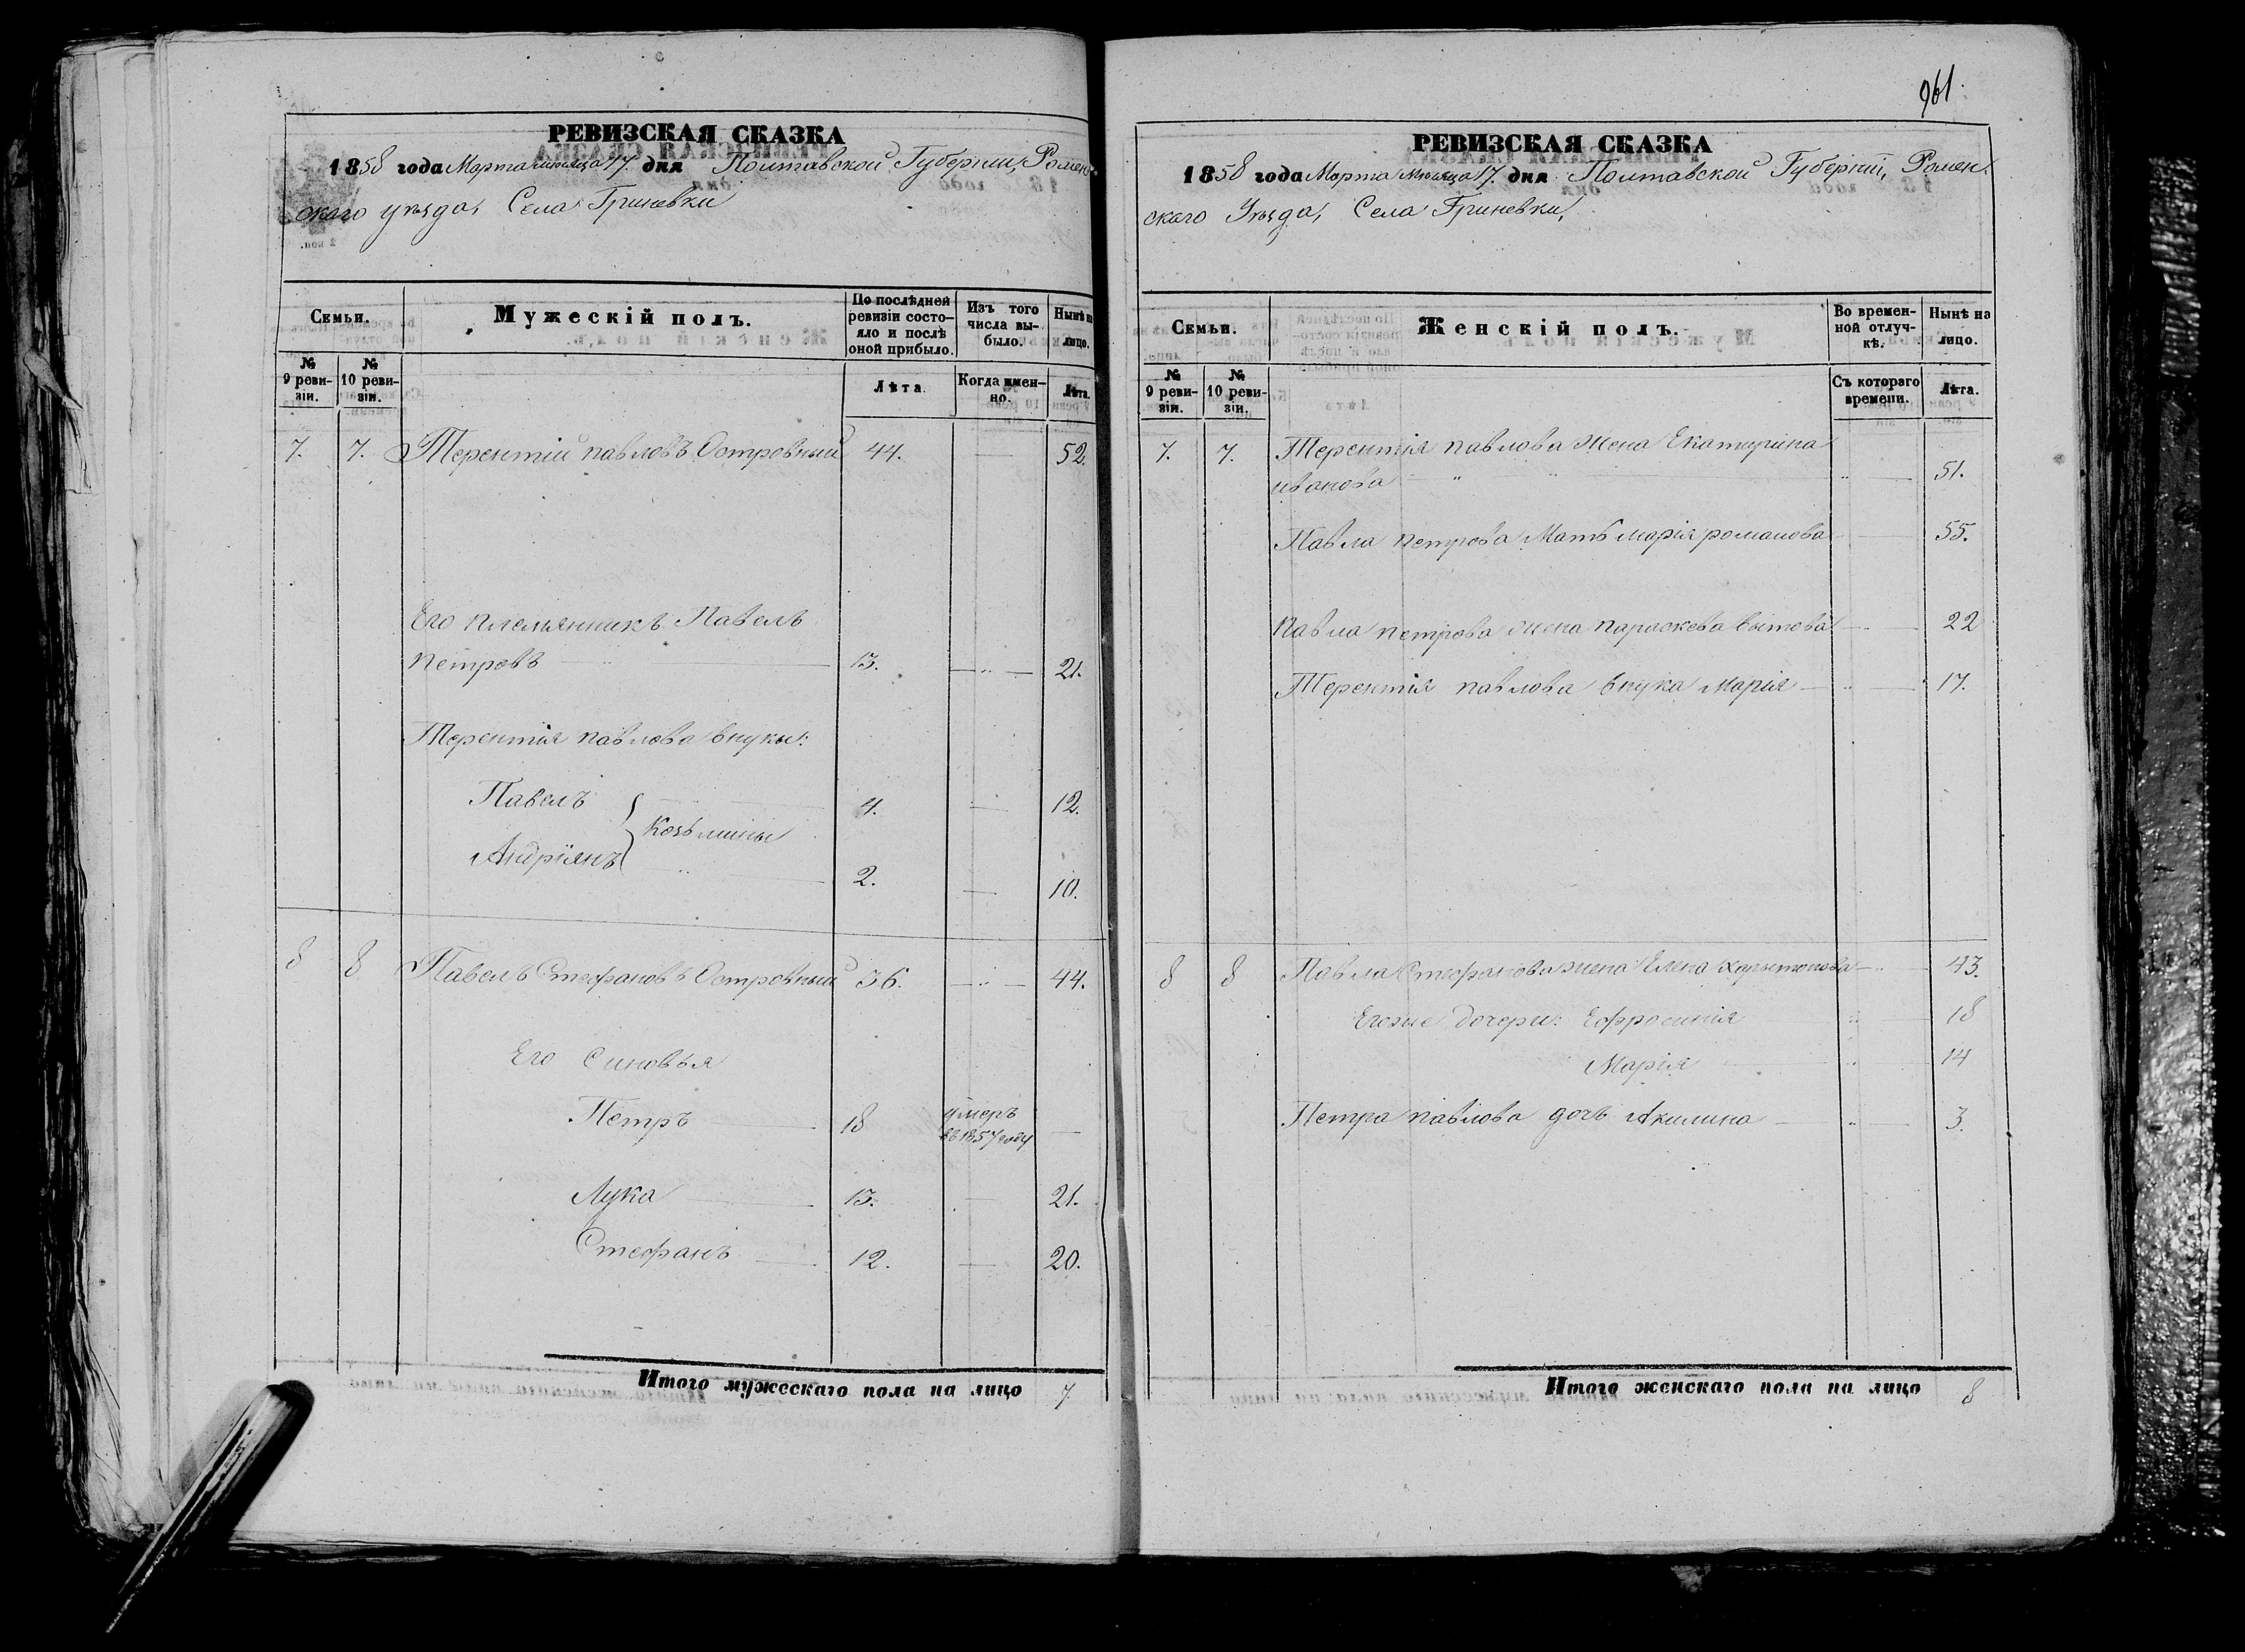 961.
РЕВИЗСКАЯ СКАЗКА
1858 года Марта месяца 17. дня Полтавской Губернии, Ромен-
скаго уѣзда, Села Гриневки
Семьи.
Мужескій полъ.
По послѣдней ревизіи состо-яло и послѣ оной прибыло.
Изъ того числа вы-было.
Нынѣ на лицо.
№ 9 реви-зіи.
№ 10 реви-зіи.
Лѣта.
Когда имен-но.
Лѣта.
7. 7. Терентій павловъ Островный 44. — 52.
Его племянникъ Павелъ
петровъ — 13. — 21.
Терентія павлова внуки:
Павелъ 4. — 12.
Козьмины
Андріянъ 2. — 10.
8 8 Павелъ Стефановъ Островный 36. — 44.
Его Синовья
Петръ 18 умеръ въ 1857 году —
Лука 13. — 21.
Стефанъ 12. — 20.
Итого мужескаго пола на лицо 7.
РЕВИЗСКАЯ СКАЗКА
1858 года Марта месяца 17. дня Полтавской Губерніи, Ромен-
скаго Уѣзда, Села Гриневки,
Семьи.
Женскій полъ.
Во времен-ной отлуч-кѣ.
Нынѣ на лицо.
№ 9 реви-зіи.
№ 10 реви-зіи.
Съ котораго времени.
Лѣта.
7. 7. Терентія павлова Жена Екатирина
иванова — 51.
Павла петрова Мать марія романова — 55.
Павла петрова жена параскева — 22
Терентія павлова внука Марія — 17.
8 8 Павла Стефанова жена Елена — 43.
Егоже дочери: Ефросинія 18
Марія 14
Петра павлова дочь Акилина — 3.
Итого женскаго пола на лицо 8